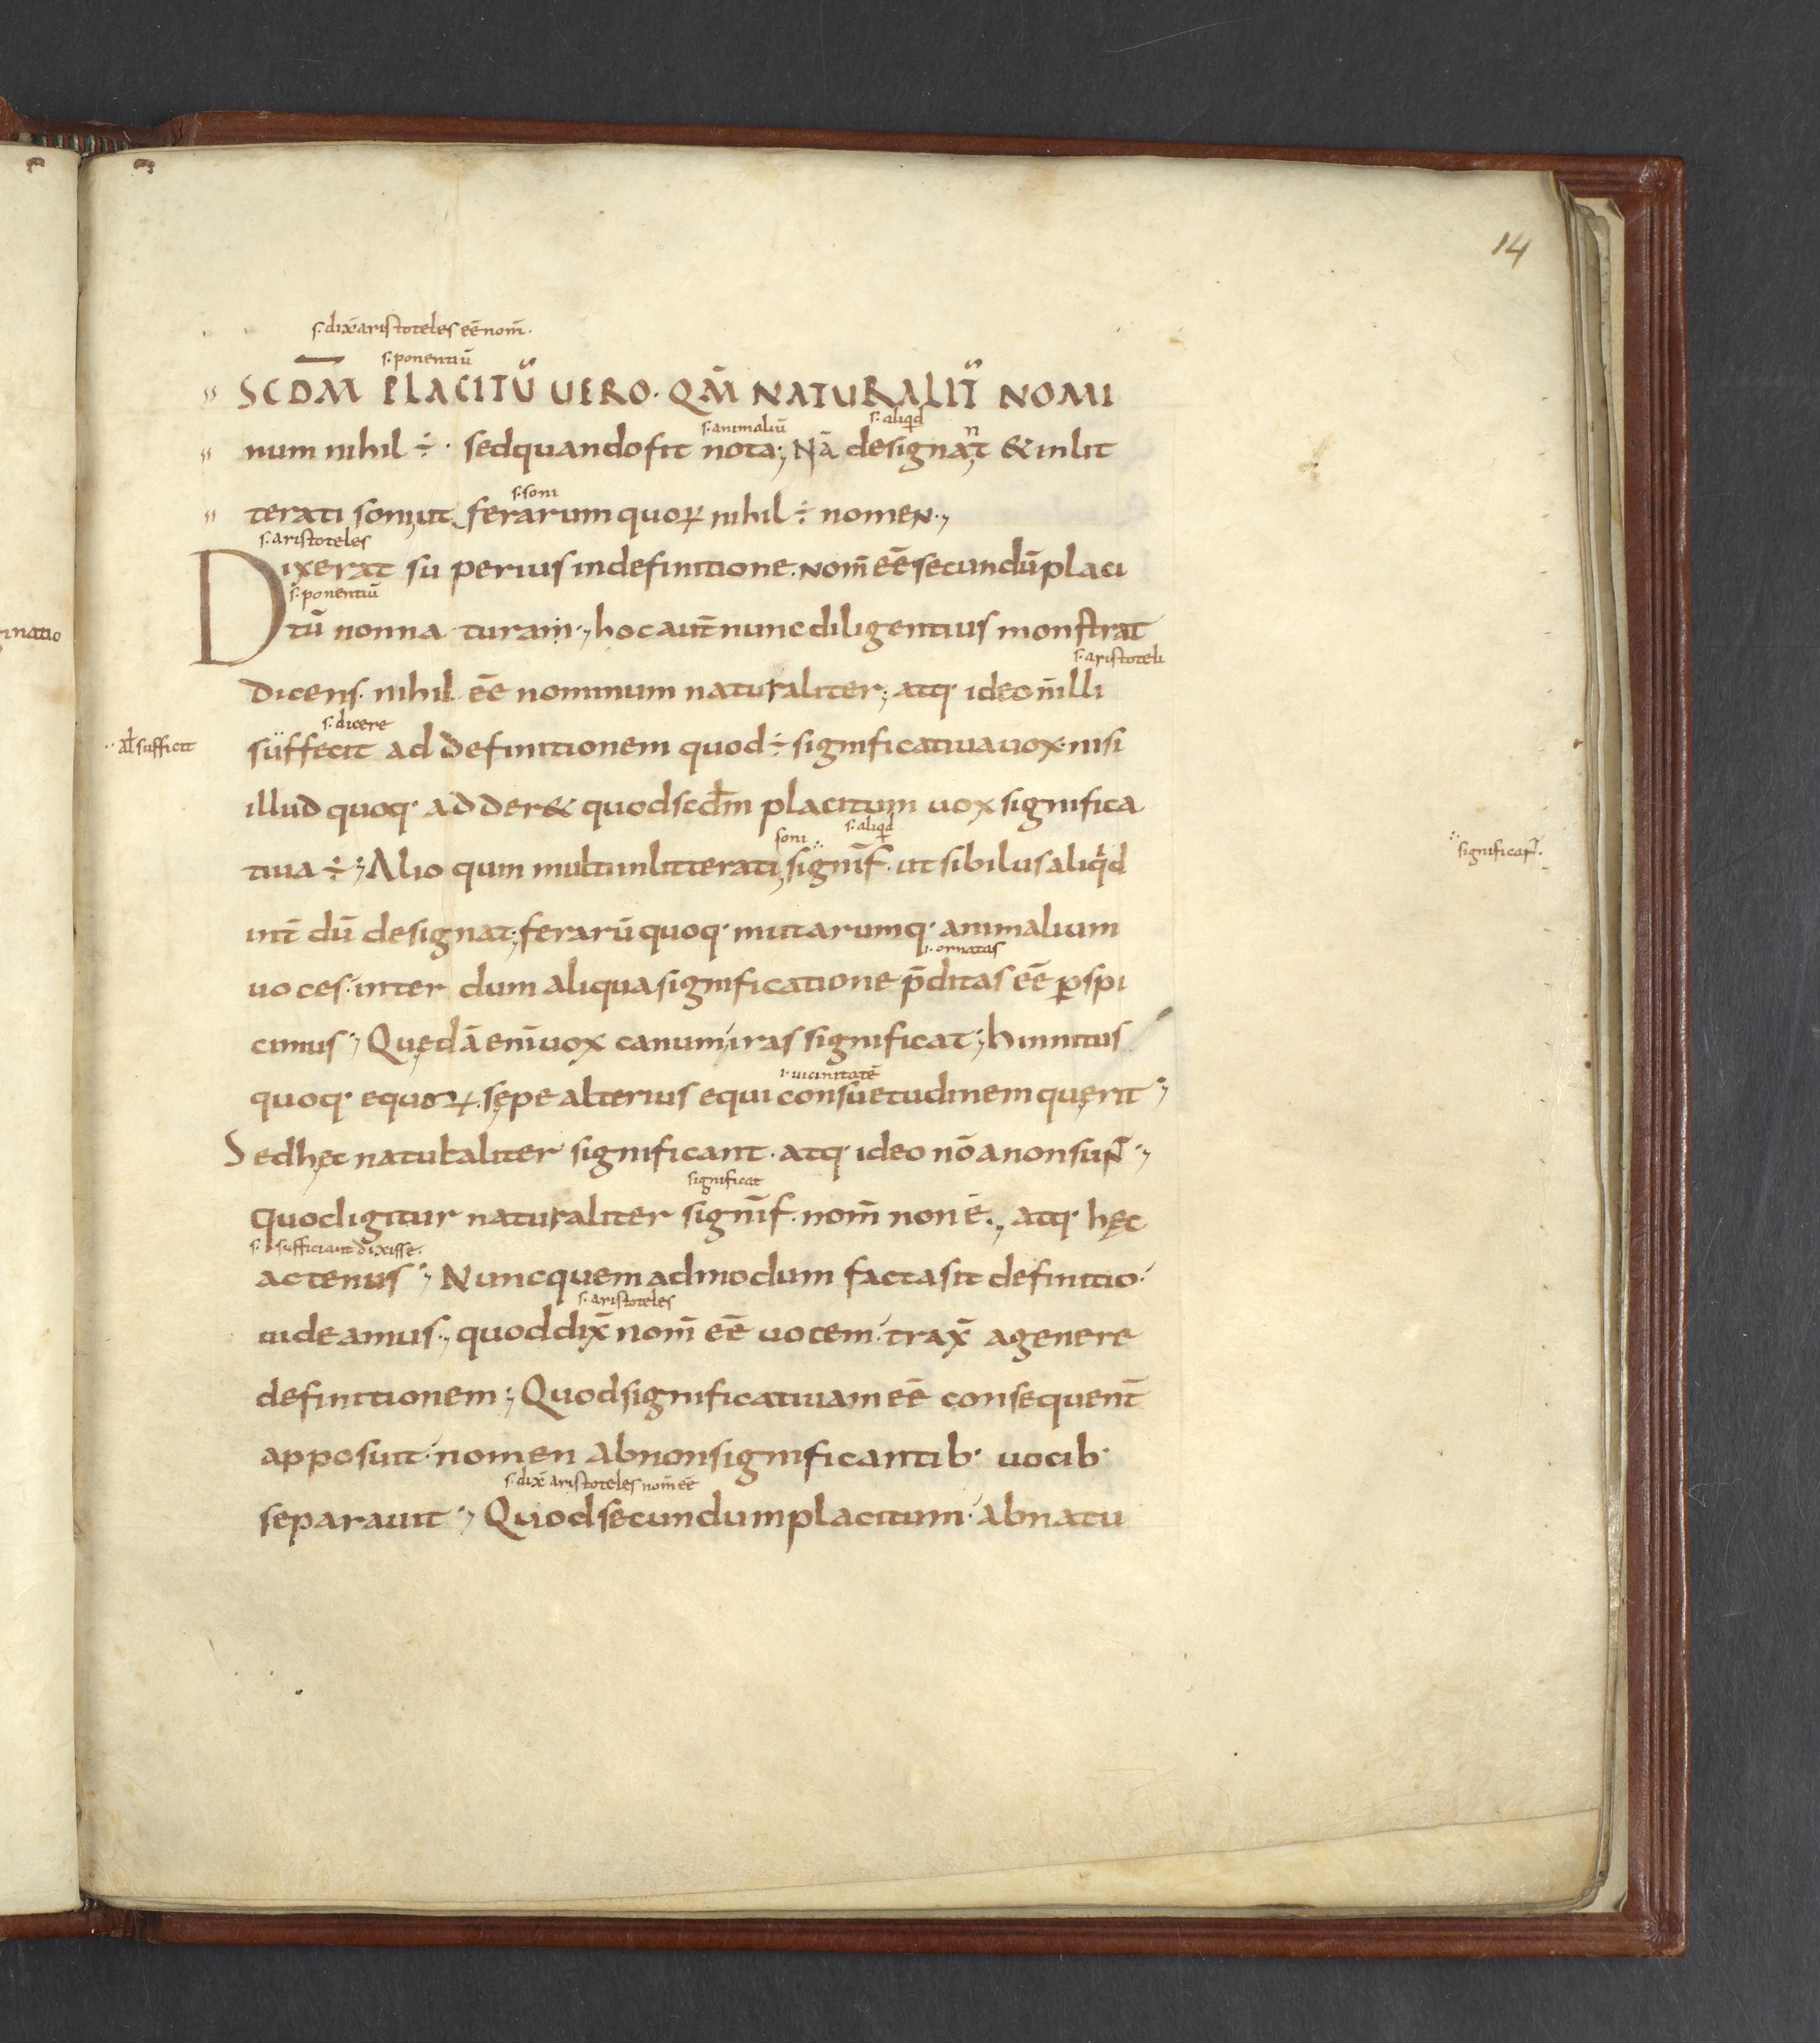 14
s. dix̄ aristoteles eē nom̄.
s. ponentiū
SCDM̄ PLACITŪ UERO. QM̄ NATURALIT̄ NOMI
s. animaliū s. aliqd n
num nihil ÷ · sed quando fit nota; Nā designat̄ & inlit
s. soni
terati soni, ut ferarum quoꝝ nihil ÷ nomen.,
s. aristoteles
Dixerat superius in definitione. nom̄ eē secundū placi
s. ponentiū
tū non naturam., hoc aut̄ nunc diligentius monstrat
s. aristoteli
dicens. nihil eē nominum naturaliter; atq· ideo n̄ illi
s. dicere
al̄ sufficit
suffecit ad definitionem quod ÷ significatiua uox. nisi
illud quoq· adder& quod scd̄m placitum uox significa
soni s. aliqd
tiua ÷; Alioquin multi inlitterati, signif̄. ut sibilus aliqd
significaɴ̄t.
int̄dū designat; ferarū quoq· mutarumq· animalium
i. ornatas
uoces. interdum aliqua significatione p̄ditas eē ꝑspi
cimus; Quędā eni̅ uox canum, iras significat; hinnitus
i. uicinitatē
quoq· equoꝝ. sępe alterius equi consuetudinem quęrit;
Sed hęc naturaliter significant. atq· ideo nōa non suɴ̄t;
significat
Quod igitur naturaliter signif̄. nom̄ non ē., atq· hęc
s. sufficiant dixisse.
actenus; Nunc quemadmodum facta sit definitio.
s. aristoteles
uideamus., quod dix̄ nom̄ eē uocem. trax̄ a genere
definitionem; Quod significatiuam eē consequent̄
apposuit. nomen ab non significantib· uocib·
s. dix̄ aristoteles nom̄ eē
separauit; Quod secundum placitum. ab natu